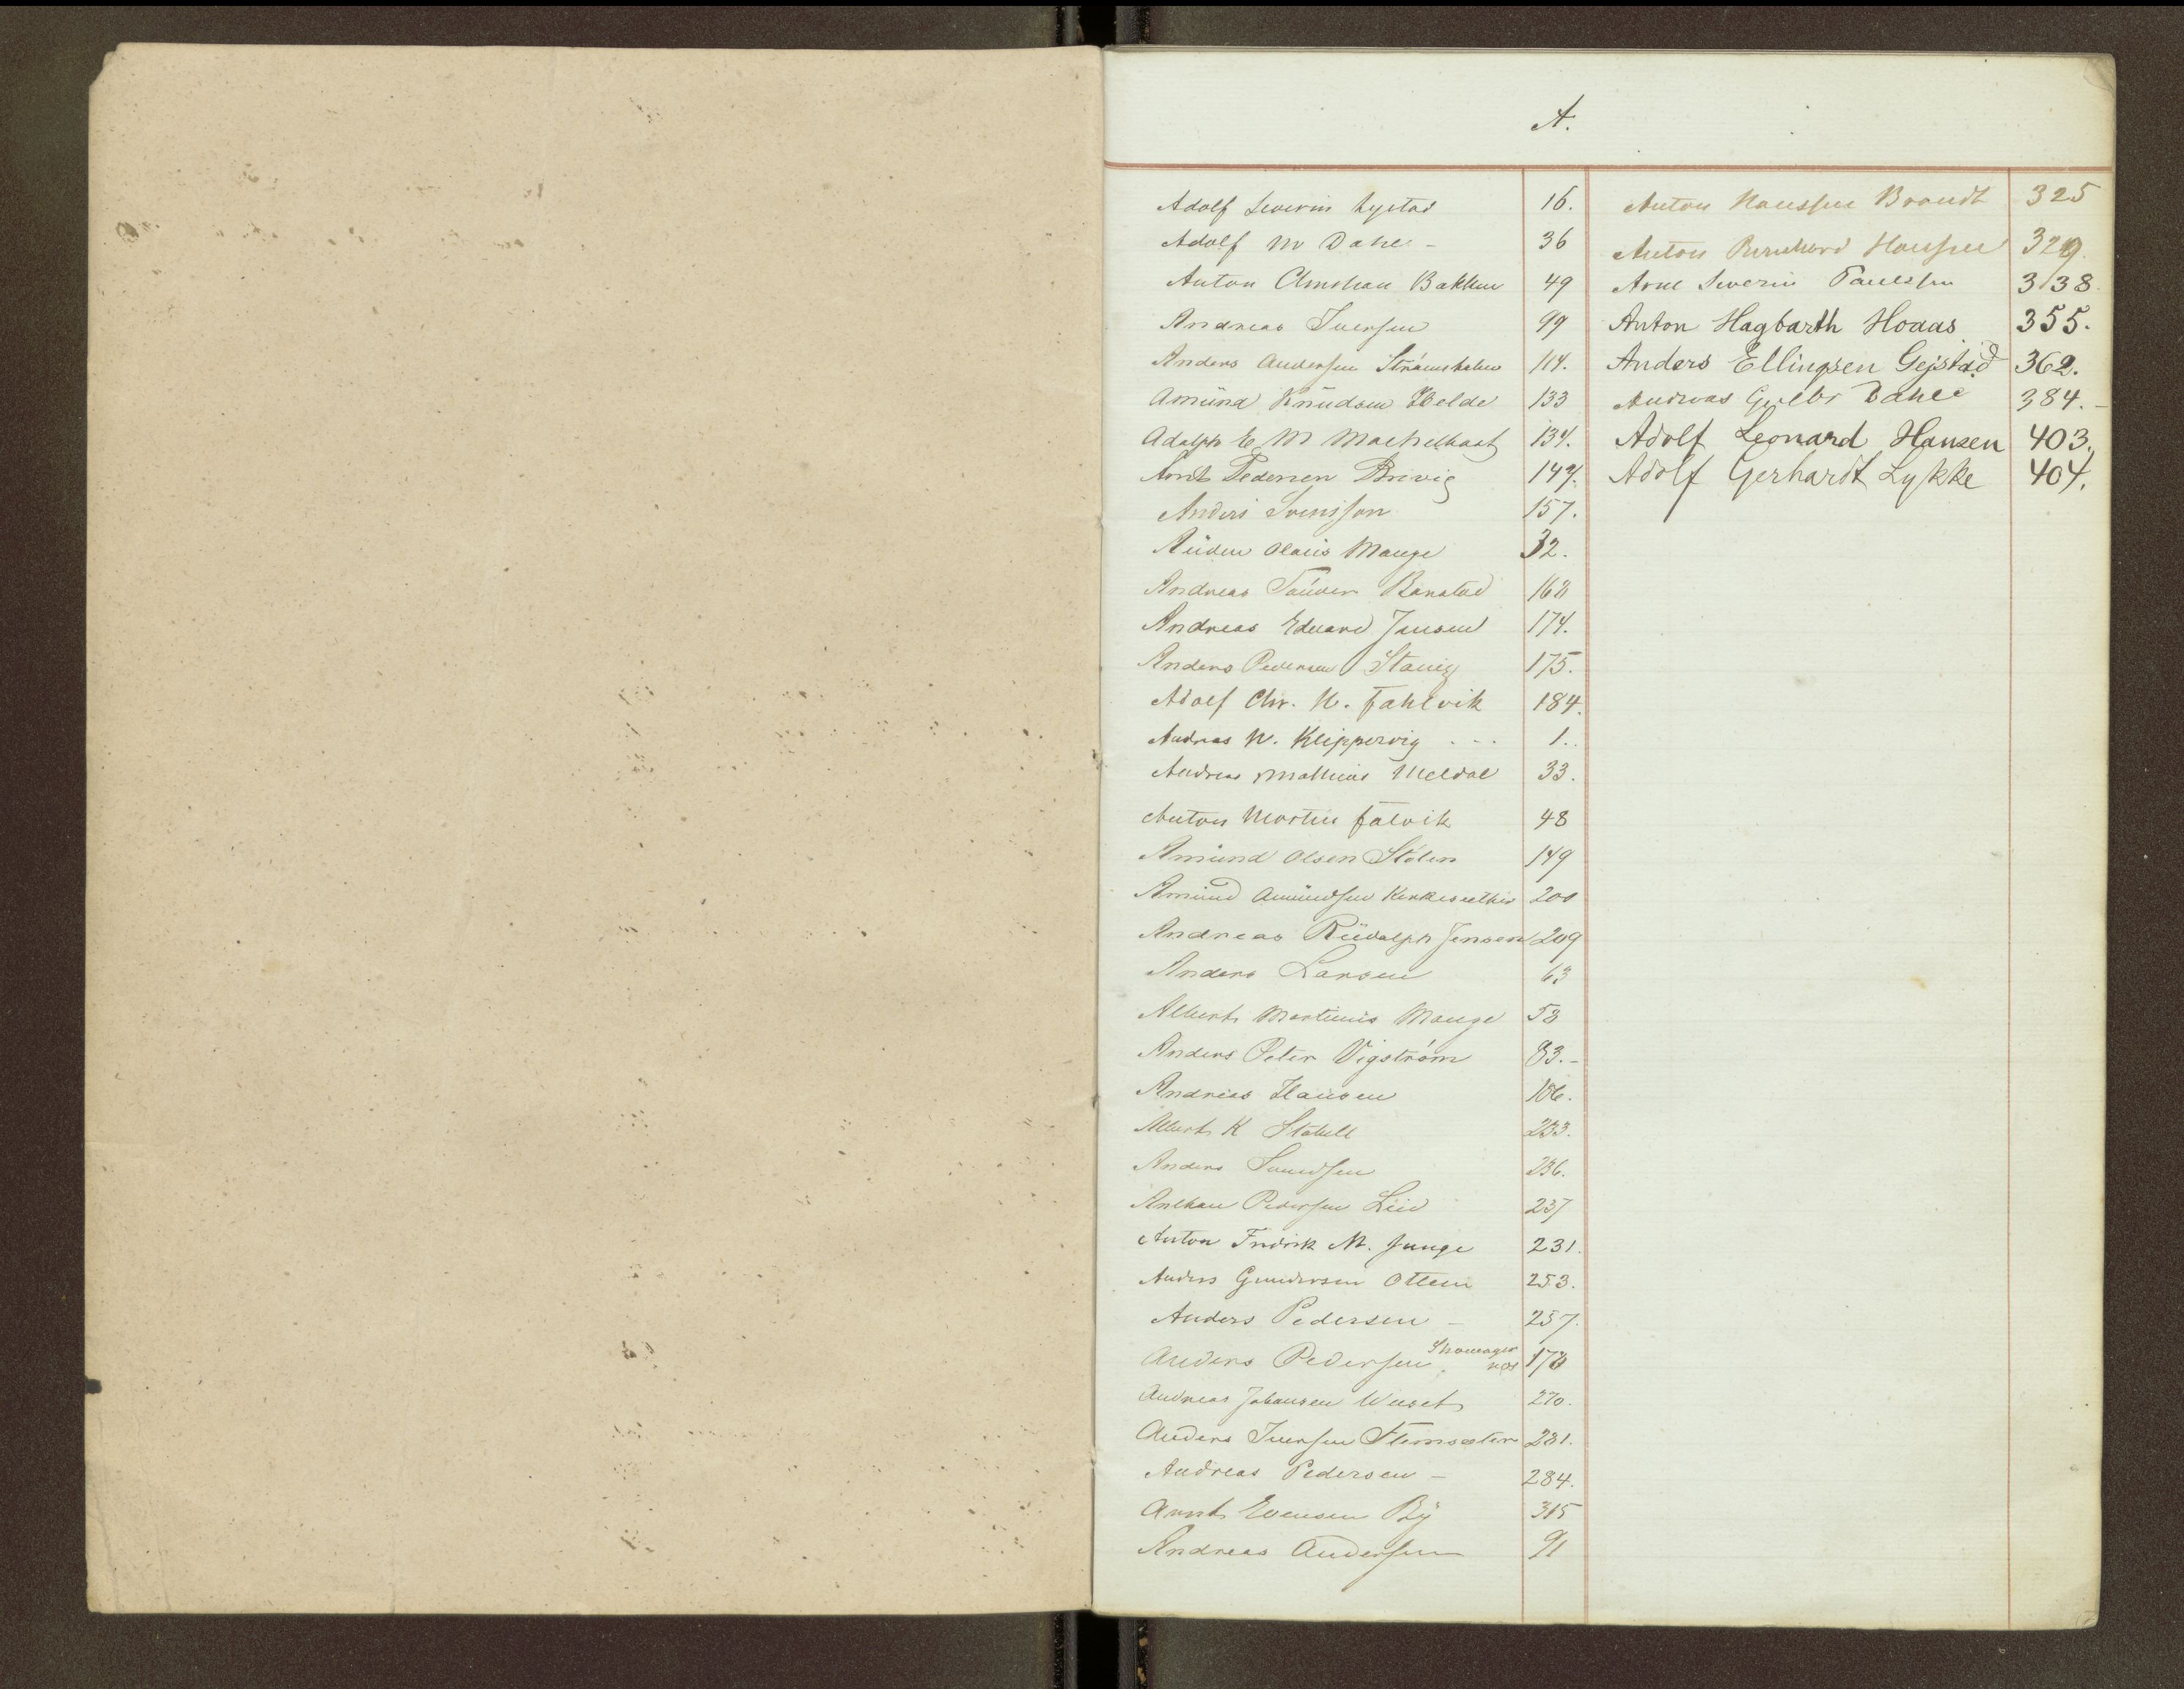 A.
Adolf Severin Lystad 16.
Adolf M Dahl - 36
Anton Christian Bakken 49
Andreas Iversen 99
Anders Andersen Strømshalm 114.
Amund Knudsen Helde 133
Adolph E M 134.
Arnt Pedersen Brevig 147.
Anders Svensson 157.
Auden Olaus Mauge 32.
Andreas 168
Andreas Eduard Jensen 174.
Anders Pedersen Stavig 175.
Adolf Chr. N. Fahlvik 184.
Andreas N. Klippervig . - - 1.
Andreas Mathias Meldal 33.
Anton Martin Falvik 48
Amund Olsen Stølen 149
Amund Amundsen 200
Andreas Rudolph Jensen 209
Anders Larsen 63
Albert Martinus Mauge 53
Anders Peter Vigstrøm 83.-
Andreas Hansen 106.
Albert K Stabell 233.
Anders 236.
Pedersen 237
Anton Fredrik M. Junge 231.
Anders Gundersen Ottem 253.
Anders Pedersen - 257.
Anders Pedersen 178
Andreas Johansen 270.
Anders Iversen Stemsæter 281.
Andreas Pedersen - 284.
Arnt Evensen By 315
Andreas Andersen 91
Anton Hanssen Brandt 325
Anton Bernhard Hanssen 329.
Arne Severin Paulssen 338.
Anton Hagbarth Hoaas 355.
Anders Ellingsen Gejstad 362.
Andreas Gulbr Dahle 384.-
Adolf Leonard Hansen 403.
Adolf Gerhardt Lykke 404.